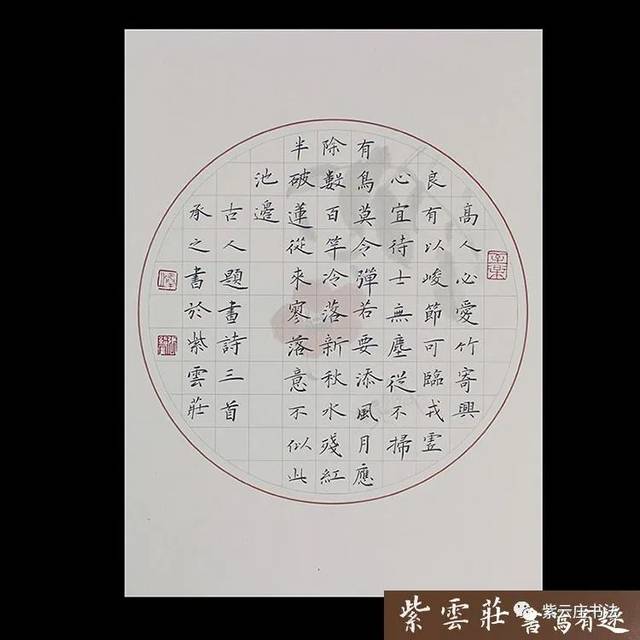 高人心愛竹寄興
良有以峻節可臨戎虛
心宜待士無塵從不掃
有鳥莫令彈若要添風月應
除數百竿冷落新秋水殘紅
半破蓮從來寥落意不似此
池邊
古人題畫詩三首
承之書於紫雲莊
紫雲莊書寫有趣
紫云庄书法